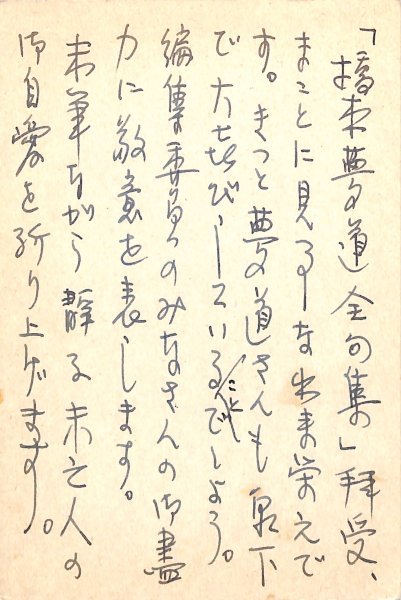 「橋本夢道全句集」拝受、
まことに見事な出来栄えで
す。きっと夢道さんも泉下
で大喜びしていることでしよう。
編集委員のみなさんの御盡
力に敬意を表します。
末筆ながら静子未亡人の
御自愛を祈り上げます。